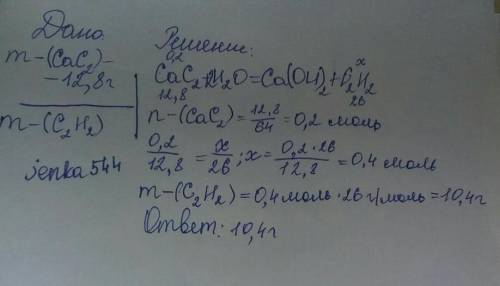 Дано:
m-(CaC₂)-
-12,8г
m-(C₂H₂)
jenka544
Решение:
0,2 x
CaC₂+2H₂O=Ca(OH)₂+C₂H₂
12,8 26
n-(CaC₂)=12,8/64=0,2 моль
0,2/12,8=x/26; x=0,2·26/12,8=0,4 моль
m-(C₂H₂)=0,4моль·26г/моль=10,4г
Ответ: 10,4г